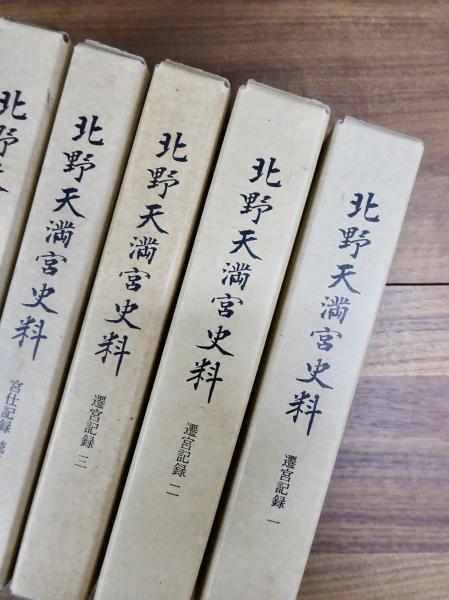 北野天満宮史料
遷宮記録 一
北野天満宮史料
遷宮記録 二
北野天満宮史料
遷宮記録 三
北野天満宮史料
宮仕記録 続
北野天